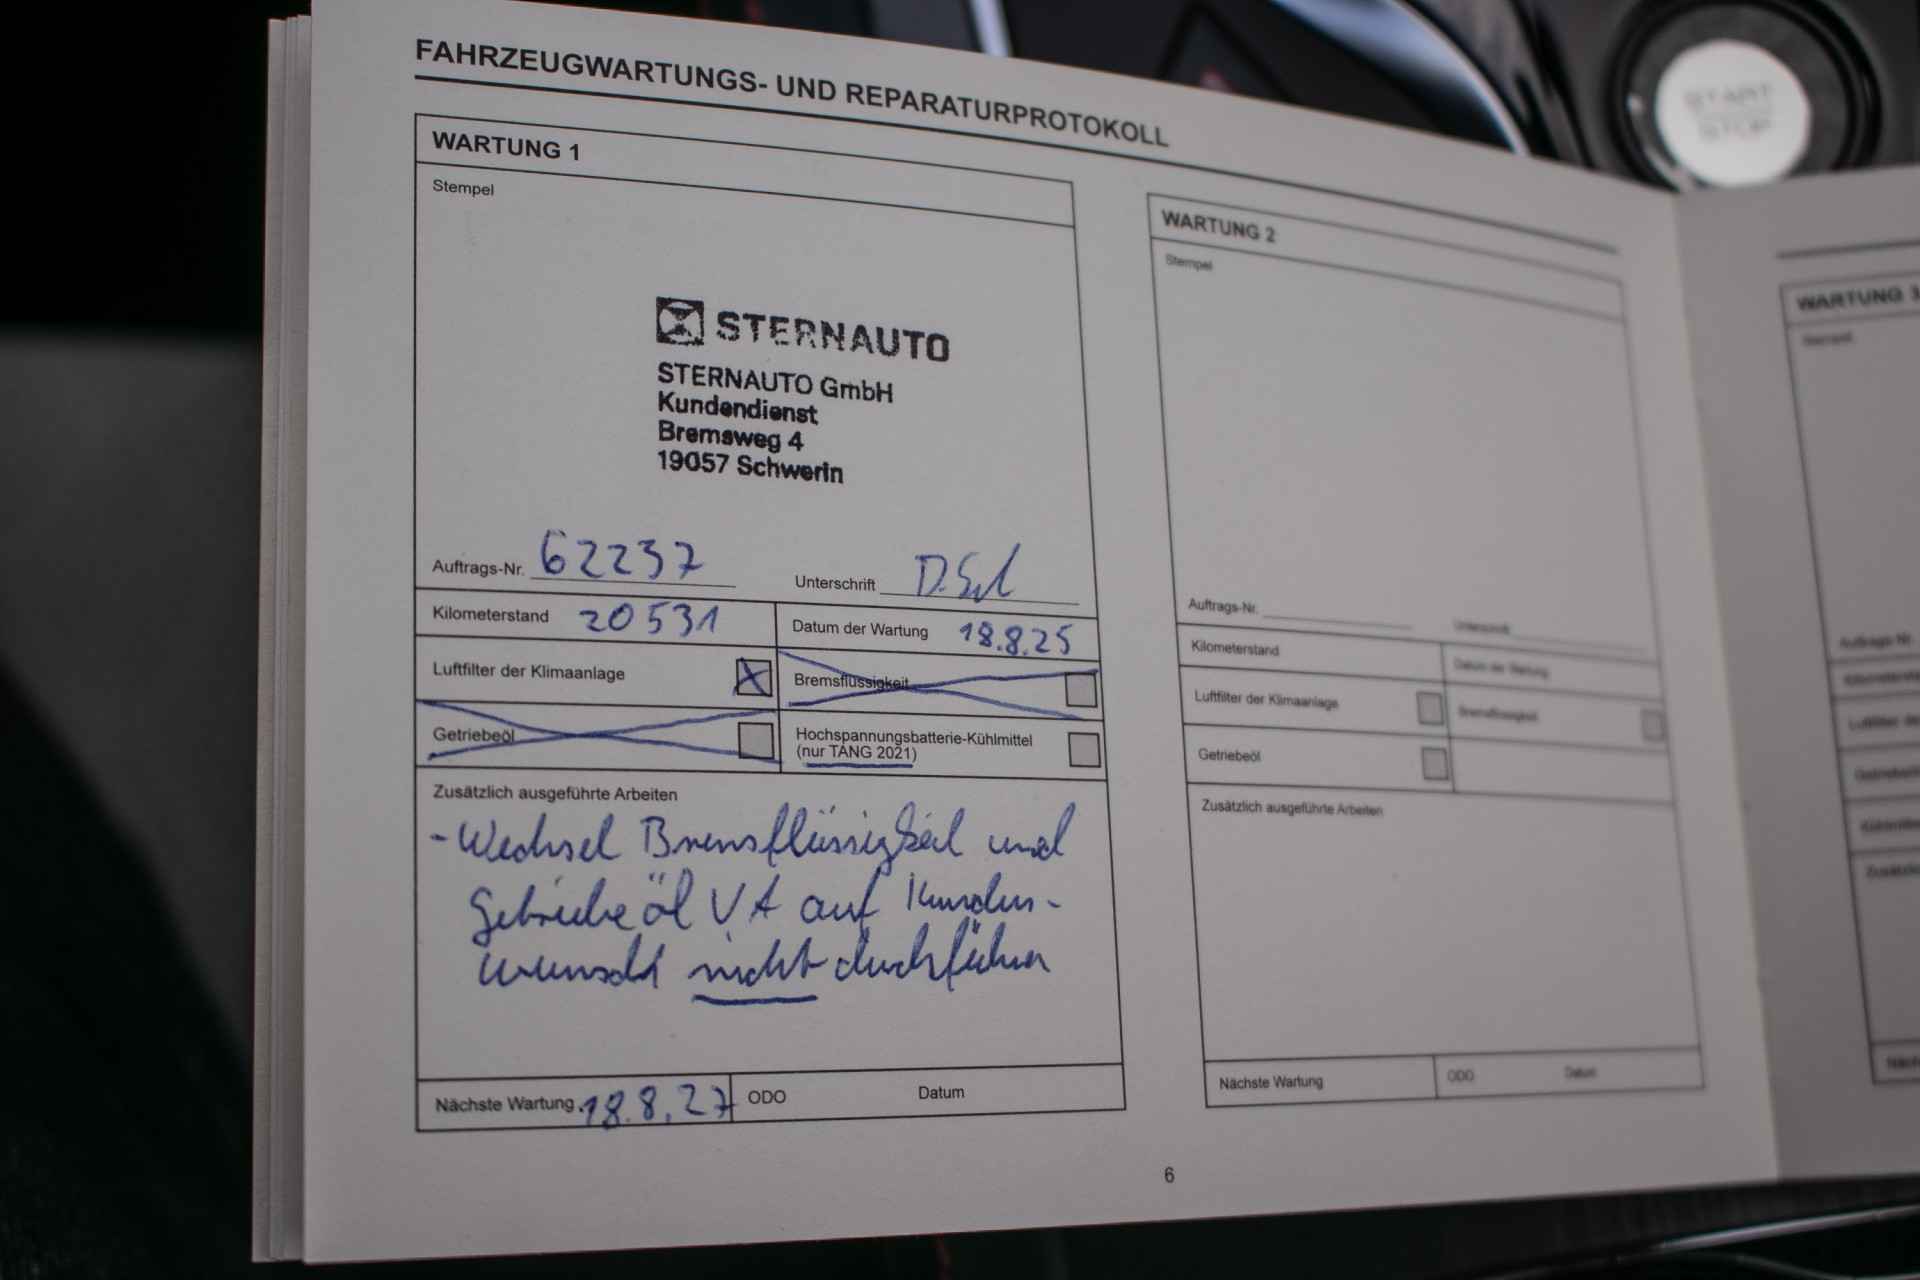 START
STOP
FAHRZEUGWARTUNGS- UND REPARATURPROTOKOLL
WARTUNG 1
Stempel
STERNAUTO
STERNAUTO GmbH
Kundendienst
Bremsweg 4
19057 Schwerin
Auftrags-Nr. 62237
Unterschrift
Kilometerstand 20531
Datum der Wartung 18.8.25
Luftfilter der Klimaanlage
Bremsflüssigkeit
Getriebeöl
Hochspannungsbatterie-Kühlmittel
(nur TANG 2021)
Zusätzlich ausgeführte Arbeiten
- Wechsel Bremsflüssigkeit und
Getriebeöl VA auf Kunden-
wunsch nicht durchführen
Nächste Wartung 18.8.27
ODO
Datum
WARTUNG 2
Stempel
Auftrags-Nr.
Unterschrift
Kilometerstand
Datum der Wartung
Luftfilter der Klimaanlage
Bremsflüssigkeit
Getriebeöl
Zusätzlich ausgeführte Arbeiten
Nächste Wartung
ODO
Datum
6
WARTUNG 3
Stempel
Auftrags-Nr.